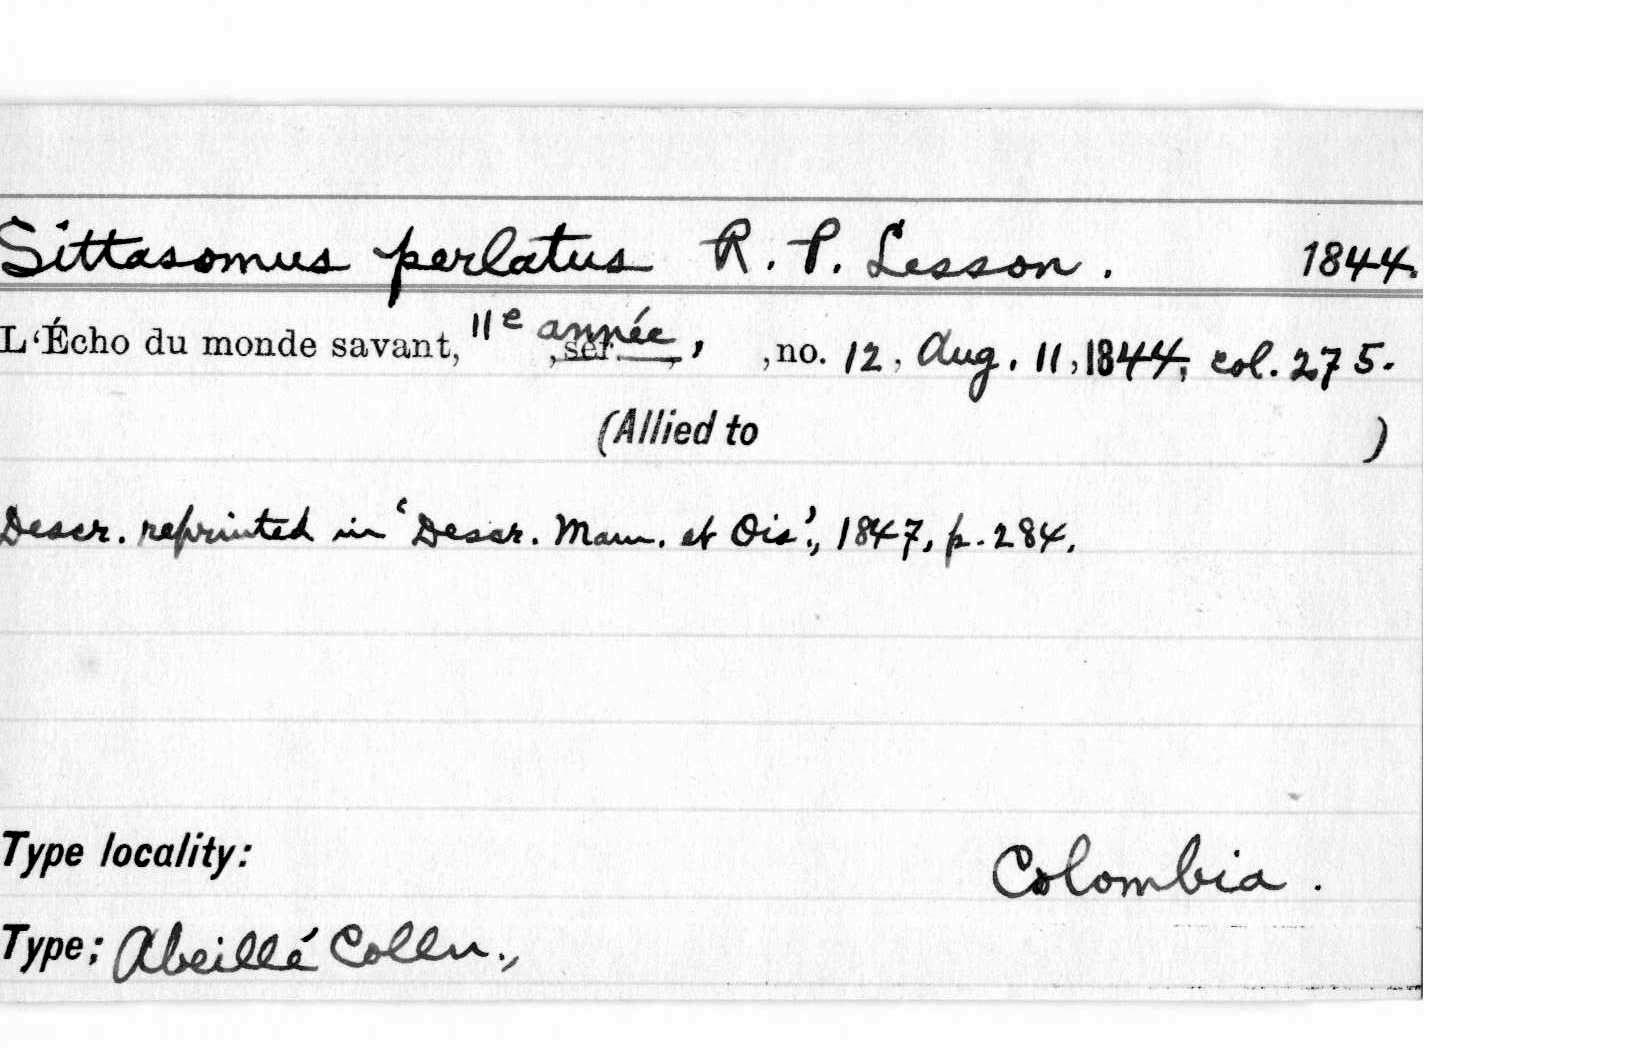 Sittasomus perlatus R. P. Lesson. 1844.
L'Écho du monde savant, 11e année, ,ser. , ,no. 12, Aug. 11, 1844, col. 275.
(Allied to )
Descr. reprinted in 'Descr. Mam. et Ois.', 1847, p. 284.
Type locality: Colombia.
Type: Abeillé Colln.,